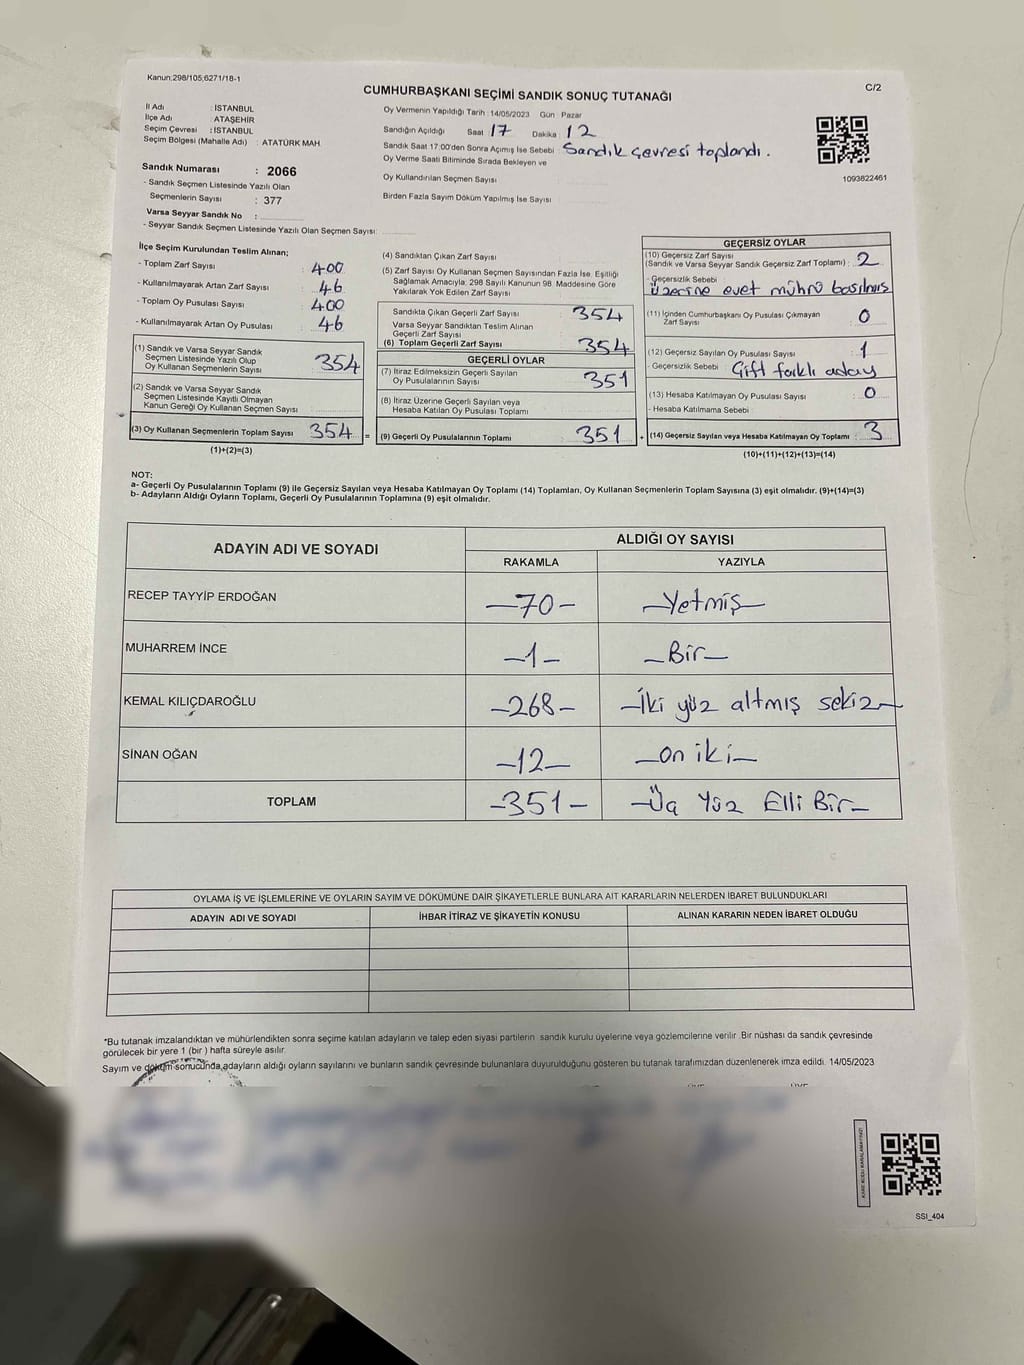 Kanun:298/105,6271/18-1
C/2
CUMHURBAŞKANI SEÇİMİ SANDIK SONUÇ TUTANAĞI
İl Adı : İSTANBUL
İlçe Adı : ATAŞEHİR
Seçim Çevresi : İSTANBUL
Seçim Bölgesi (Mahalle Adı) : ATATÜRK MAH
Sandık Numarası : 2066
- Sandık Seçmen Listesinde Yazılı Olan
Seçmenlerin Sayısı : 377
Varsa Seyyar Sandık No :
- Seyyar Sandık Seçmen Listesinde Yazılı Olan Seçmen Sayısı:
Oy Vermenin Yapıldığı Tarih : 14/05/2023 Gün : Pazar
Sandığın Açıldığı Saat : 17 Dakika : 12
Sandık Saat 17:00'den Sonra Açımış İse Sebebi : Sandık çevresi toplandı.
Oy Verme Saati Bitiminde Sırada Bekleyen ve
Oy Kullandırılan Seçmen Sayısı
Birden Fazla Sayım Döküm Yapılmış İse Sayısı
1093822461
İlçe Seçim Kurulundan Teslim Alınan;
- Toplam Zarf Sayısı : 400
- Kullanılmayarak Artan Zarf Sayısı : 46
- Toplam Oy Pusulası Sayısı : 400
- Kullanılmayarak Artan Oy Pusulası : 46
(1) Sandık ve Varsa Seyyar Sandık
Seçmen Listesinde Yazılı Olup
Oy Kullanan Seçmenlerin Sayısı : 354
(2) Sandık ve Varsa Seyyar Sandık
Seçmen Listesinde Kayıtlı Olmayan
Kanun Gereği Oy Kullanan Seçmen Sayısı
(3) Oy Kullanan Seçmenlerin Toplam Sayısı : 354 =
(1)+(2)=(3)
(4) Sandıktan Çıkan Zarf Sayısı
(5) Zarf Sayısı Oy Kullanan Seçmen Sayısından Fazla İse, Eşitliği
Sağlamak Amacıyla; 298 Sayılı Kanunun 98. Maddesine Göre
Yakılarak Yok Edilen Zarf Sayısı
Sandıkta Çıkan Geçerli Zarf Sayısı : 354
Varsa Seyyar Sandıktan Teslim Alınan
Geçerli Zarf Sayısı
(6) Toplam Geçerli Zarf Sayısı : 354
GEÇERLİ OYLAR
(7) İtiraz Edilmeksizin Geçerli Sayılan
Oy Pusulalarının Sayısı : 351
(8) İtiraz Üzerine Geçerli Sayılan veya
Hesaba Katılan Oy Pusulası Toplamı
(9) Geçerli Oy Pusulalarının Toplamı : 351 +
GEÇERSİZ OYLAR
(10) Geçersiz Zarf Sayısı
(Sandık ve Varsa Seyyar Sandık Geçersiz Zarf Toplamı) : 2
- Geçersizlik Sebebi :
üzerine evet mührü basılmış
(11) İçinden Cumhurbaşkanı Oy Pusulası Çıkmayan
Zarf Sayısı : 0
(12) Geçersiz Sayılan Oy Pusulası Sayısı : 1
- Geçersizlik Sebebi : Çift farklı aday
(13) Hesaba Katılmayan Oy Pusulası Sayısı : 0
- Hesaba Katılmama Sebebi :
(14) Geçersiz Sayılan veya Hesaba Katılmayan Oy Toplamı : 3
(10)+(11)+(12)+(13)=(14)
NOT:
a- Geçerli Oy Pusulalarının Toplamı (9) ile Geçersiz Sayılan veya Hesaba Katılmayan Oy Toplamı (14) Toplamları, Oy Kullanan Seçmenlerin Toplam Sayısına (3) eşit olmalıdır. (9)+(14)=(3)
b- Adayların Aldığı Oyların Toplamı, Geçerli Oy Pusulalarının Toplamına (9) eşit olmalıdır.
ADAYIN ADI VE SOYADI
ALDIĞI OY SAYISI
RAKAMLA YAZIYLA
RECEP TAYYİP ERDOĞAN -70- -Yetmiş-
MUHARREM İNCE -1- -Bir-
KEMAL KILIÇDAROĞLU -268- -İki yüz altmış sekiz-
SİNAN OĞAN -12- -on iki-
TOPLAM -351- -Üç Yüz Elli Bir-
OYLAMA İŞ VE İŞLEMLERİNE VE OYLARIN SAYIM VE DÖKÜMÜNE DAİR ŞİKAYETLERLE BUNLARA AİT KARARLARIN NELERDEN İBARET BULUNDUKLARI
ADAYIN ADI VE SOYADI İHBAR İTİRAZ VE ŞİKAYETİN KONUSU ALINAN KARARIN NEDEN İBARET OLDUĞU
*Bu tutanak imzalandıktan ve mühürlendikten sonra seçime katılan adayların ve talep eden siyasi partilerin sandık kurulu üyelerine veya gözlemcilerine verilir. Bir nüshası da sandık çevresinde
görülecek bir yere 1 (bir) hafta süreyle asılır.
Sayım ve döküm sonucunda adayların aldığı oyların sayılarını ve bunların sandık çevresinde bulunanlara duyurulduğunu gösteren bu tutanak tarafımızdan düzenlenerek imza edildi. 14/05/2023
SSI_404